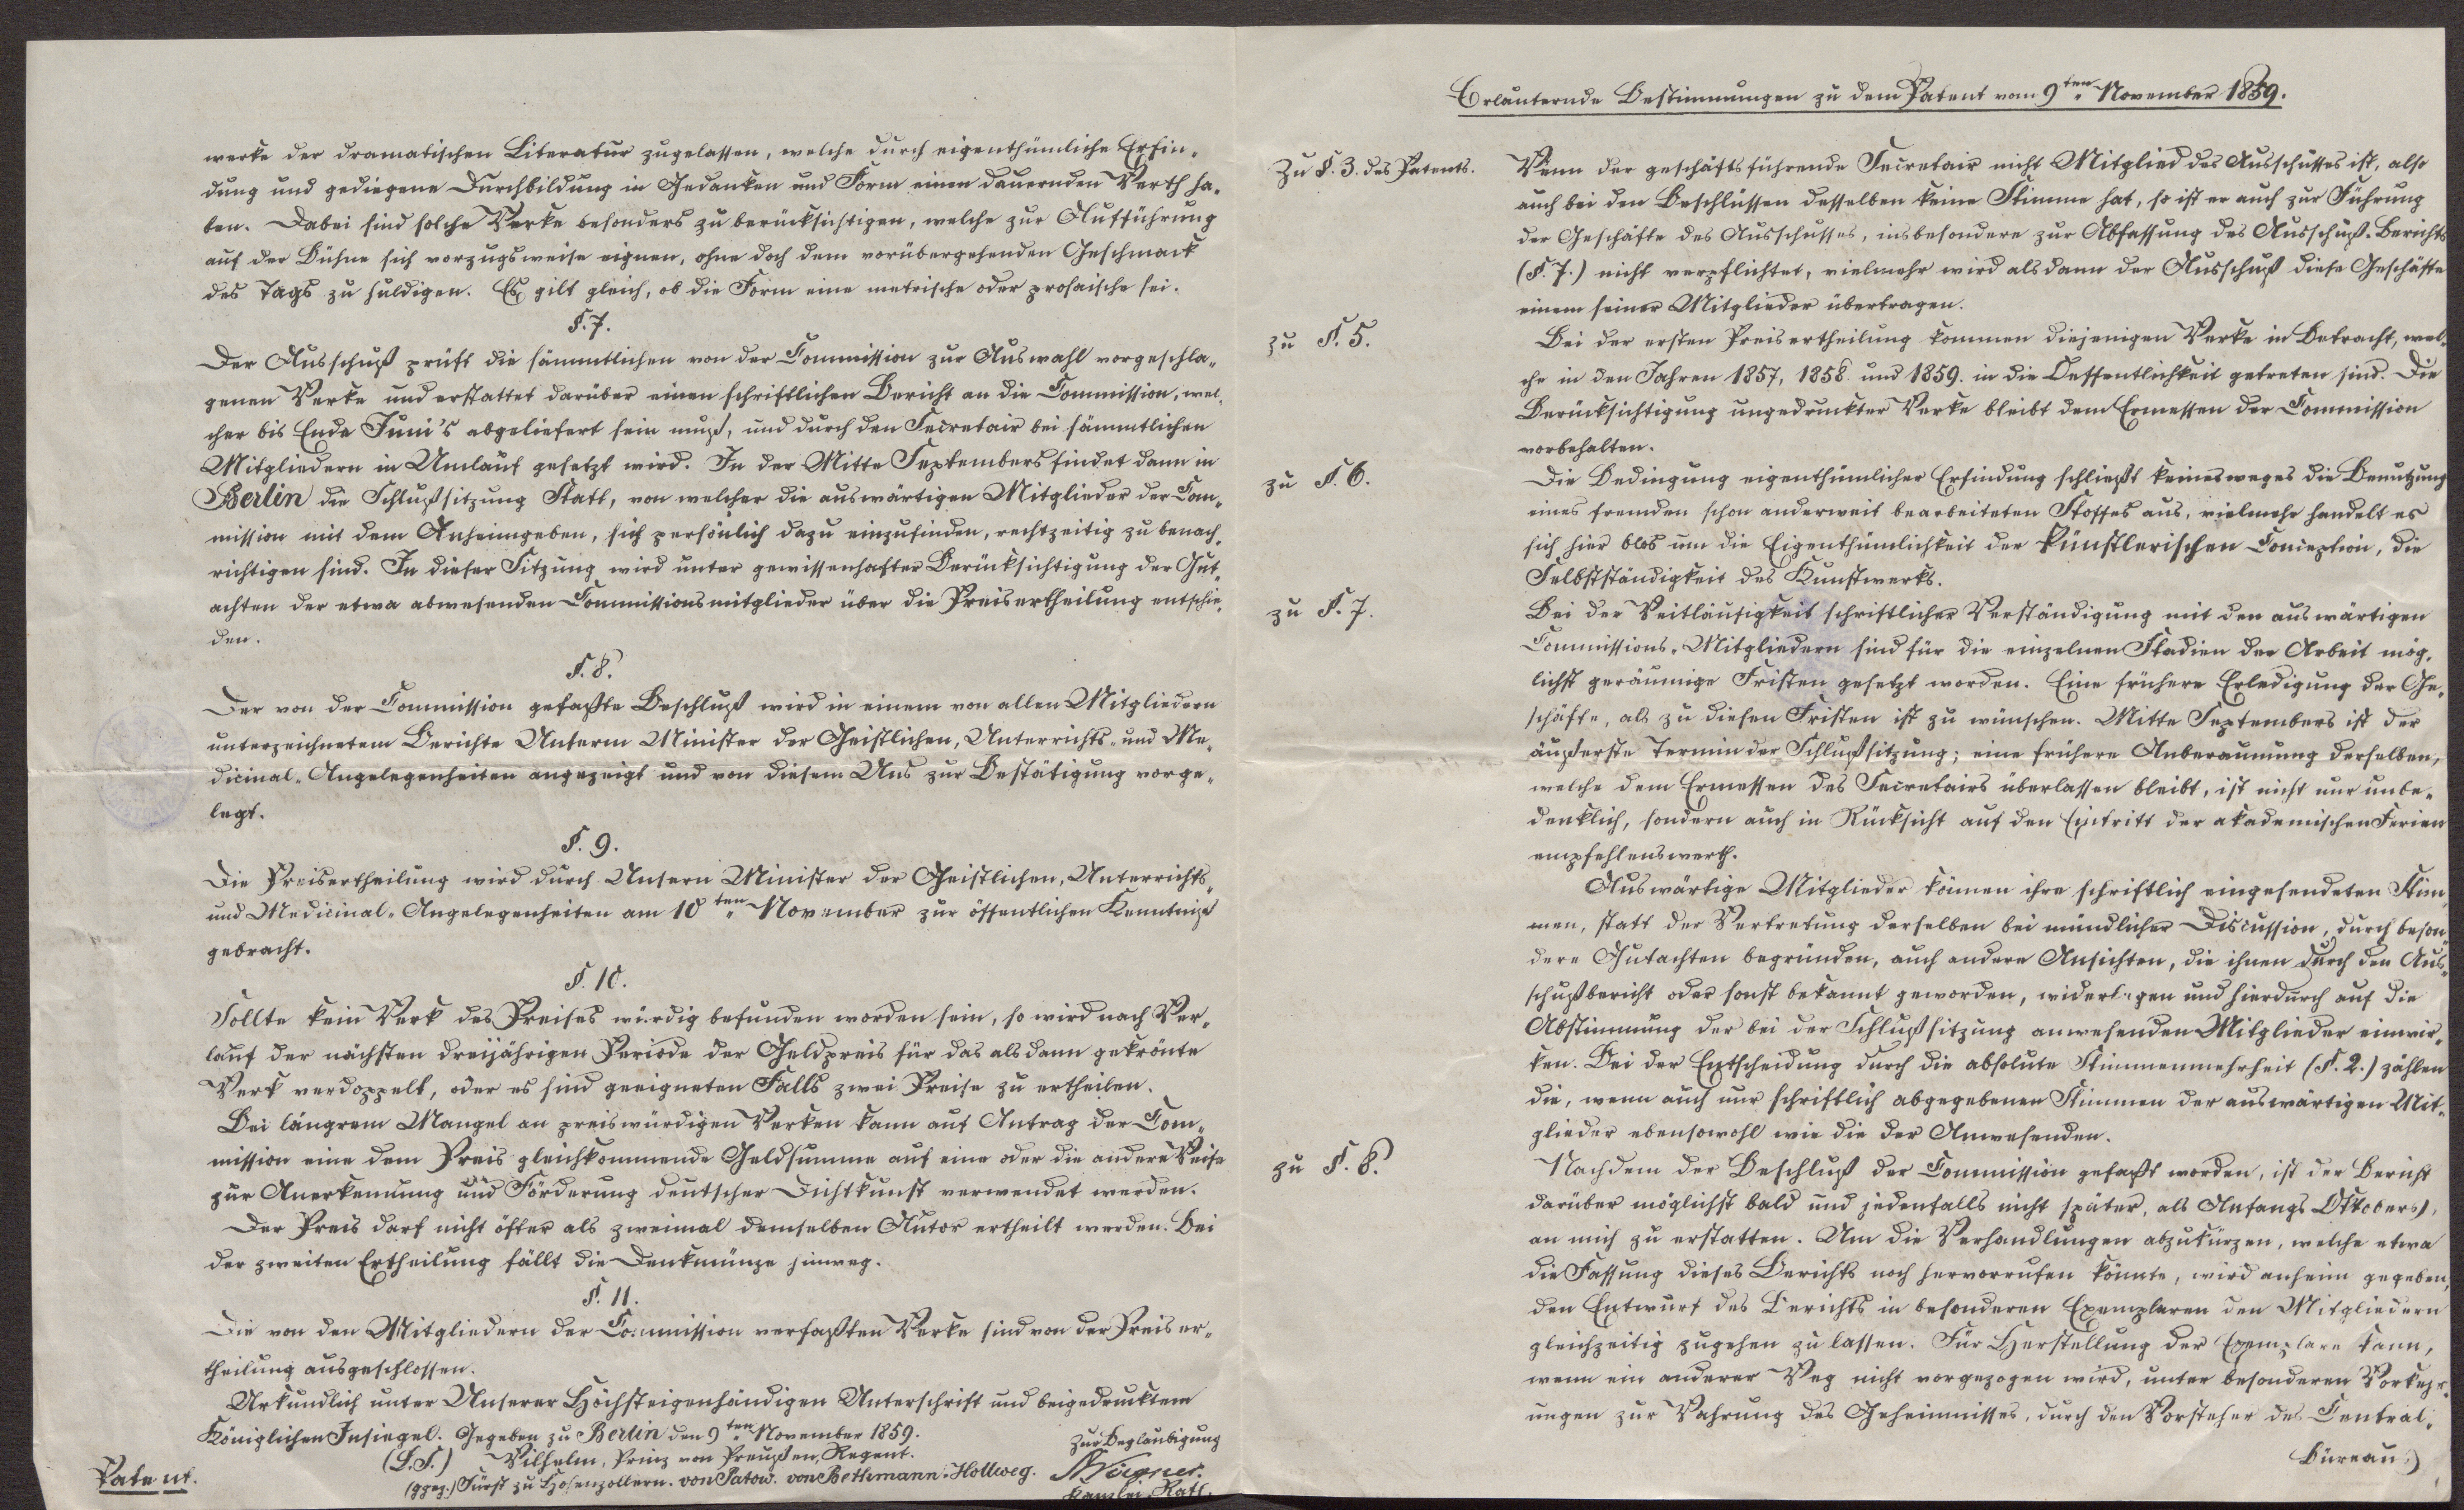 werke der dramatischen Literatur zugelassen, welche durch eigenthümliche Erfin-
dung und gediegene Durchbildung in Gedanken und Form einen dauernden Werth ha-
ben. Dabei sind solche Werke besonders zu berücksichtigen, welche zur Aufführung
auf der Bühne sich vorzugsweise eignen, ohne doch dem vorübergehenden Geschmack
des Tags zu huldigen. Es gilt gleich, ob die Form eine metrische oder prosaische sei.
§. 7.
Der Ausschuß prüft die sämmtlichen von der Commission zur Auswahl vorgeschla-
genen Werke und erstattet darüber einen schriftlichen Bericht an die Commission, wel-
cher bis Ende Juni's abgeliefert sein muß, und durch den Secretair bei sämmtlichen
Mitgliedern in Umlauf gesetzt wird. In der Mitte Septembers findet dann in
Berlin die Schlußsitzung Statt, von welcher die auswärtigen Mitglieder der Com-
mission mit dem Anheimgeben, sich persönlich dazu einzufinden, rechtzeitig zu benach-
richtigen sind. In dieser Sitzung wird unter gewissenhafter Berücksichtigung der Gut-
achten der etwa abwesenden Commissionsmitglieder über die Preisertheilung entschie-
den.
§. 8.
Der von der Commission gefaßte Beschluß wird in einem von allen Mitgliedern
unterzeichnetem Berichte Unserm Minister der Geistlichen, Unterrichts- und Me-
dicinal-Angelegenheiten angezeigt und von diesem Uns zur Bestätigung vorge-
legt.
§. 9.
Die Preisertheilung wird durch Unsern Minister der Geistlichen, Unterrichts-
und Medicinal-Angelegenheiten am 10ten November zur öffentlichen Kenntniß
gebracht.
§. 10.
Sollte kein Werk des Preises würdig befunden worden sein, so wird nach Ver-
lauf der nächsten dreijährigen Periode der Geldpreis für das alsdann gekrönte
Werk verdoppelt, oder es sind geeigneten Falls zwei Preise zu ertheilen.
Bei längrem Mangel an preiswürdigen Werken kann auf Antrag der Com-
mission eine dem Preis gleichkommende Geldsumme auf eine oder die andere Weise
zur Anerkennung und Förderung deutscher Dichtkunst verwendet werden.
Der Preis darf nicht öfter als zweimal demselben Autor ertheilt werden. Bei
der zweiten Ertheilung fällt die Denkmünze hinweg.
§. 11.
Die von den Mitgliedern der Commission verfaßten Werke sind von der Preiser-
theilung ausgeschlossen.
Urkundlich unter Unserer Höchsteigenhändigen Unterschrift und beigedrucktem
Königlichen Insiegel. Gegeben zu Berlin den 9ten November 1859.
(L.S.) Wilhelm, Prinz von Preußen, Regent.
(ggez.) Fürst zu Hohenzollern. von Patow. von Bethmann-Hollweg.
Zur Beglaubigung
Kanzlei-Rath.
Patent.
Erläuternde Bestimmungen zu dem Patent vom 9ten November 1859.
Zu §. 3. des Patents.
Wenn der geschäftsführende Secretair nicht Mitglied des Ausschusses ist, also
auch bei den Beschlüssen desselben keine Stimme hat, so ist er auch zur Führung
der Geschäfte des Ausschusses, insbesondere zur Abfassung des Ausschuß-Berichts
(§. 7.) nicht verpflichtet, vielmehr wird alsdann der Ausschuß diese Geschäfte
einem seiner Mitglieder übertragen.
zu §. 5.
Bei der ersten Preisertheilung kommen diejenigen Werke in Betracht, wel-
che in den Jahren 1857, 1858 und 1859. in die Oeffentlichkeit getreten sind. Die
Berücksichtigung ungedruckter Werke bleibt dem Ermessen der Commission
vorbehalten.
zu §. 6.
Die Bedingung eigenthümlicher Erfindung schließt keinesweges die Benutzung
eines fremden schon anderweit bearbeiteten Stoffes aus, vielmehr handelt es
sich hier blos um die Eigenthümlichkeit der künstlerischen Conception, die
Selbstständigkeit des Kunstwerks.
zu §. 7.
Bei der Weitläufigkeit schriftlicher Verständigung mit den auswärtigen
Commissions-Mitgliedern sind für die einzelnen Stadien der Arbeit mög-
lichst geräumige Fristen gesetzt worden. Eine frühere Erledigung der Ge-
schäfte, als zu diesen Fristen ist zu wünschen. Mitte Septembers ist der
äußerste Termin der Schlußsitzung; eine frühere Anberaumung derselben,
welche dem Ermessen des Secretairs überlassen bleibt, ist nicht nur unbe-
denklich, sondern auch in Rücksicht auf den Eintritt der akademischen Ferien
empfehlenswerth.
Auswärtige Mitglieder können ihre schriftlich eingesendeten Stim-
men, statt der Vertretung derselben bei mündlicher Discussion, durch beson-
dere Gutachten begründen, auch andere Ansichten, die ihnen durch den Aus-
schußbericht oder sonst bekannt geworden, widerlegen und hierdurch auf die
Abstimmung der bei der Schlußsitzung anwesenden Mitglieder einwir-
ken. Bei der Entscheidung durch die absolute Stimmenmehrheit (§. 2.) zählen
die, wenn auch nur schriftlich abgegebenen Stimmen der auswärtigen Mit-
glieder ebensowohl wie die der Anwesenden.
zu §. 8.
Nachdem der Beschluß der Commission gefaßt worden, ist der Bericht
darüber möglichst bald und jedenfalls nicht später, als Anfangs Oktobers,
an mich zu erstatten. Um die Verhandlungen abzukürzen, welche etwa
die Fassung dieses Berichts noch hervorrufen könnte, wird anheim gegeben,
den Entwurf des Berichts in besonderen Exemplaren den Mitgliedern
gleichzeitig zugehen zu lassen. Für Herstellung der Exemplare kann,
wenn ein anderer Weg nicht vorgezogen wird, unter besonderen Vorkehr-
ungen zur Wahrung des Geheimnisses, durch den Vorsteher des Central-
Büreau